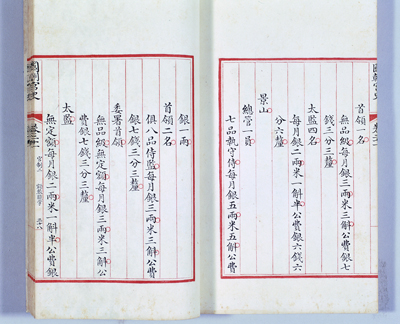 首領一名
無品級每月銀三兩米三斛公費銀七
錢三分三釐
太監四名
每月銀二兩米一斛半公費銀六錢六
分六釐
景山
總管一員
七品執守侍每月銀五兩米五斛公費
銀一兩
首領二名
俱八品侍監每月銀三兩米三斛公費
銀七錢三分三釐
委署首領
無品級無定額每月銀三兩米三斛公
費銀七錢三分三釐
太監
無定額每月銀二兩米一斛半公費銀
國朝宮史